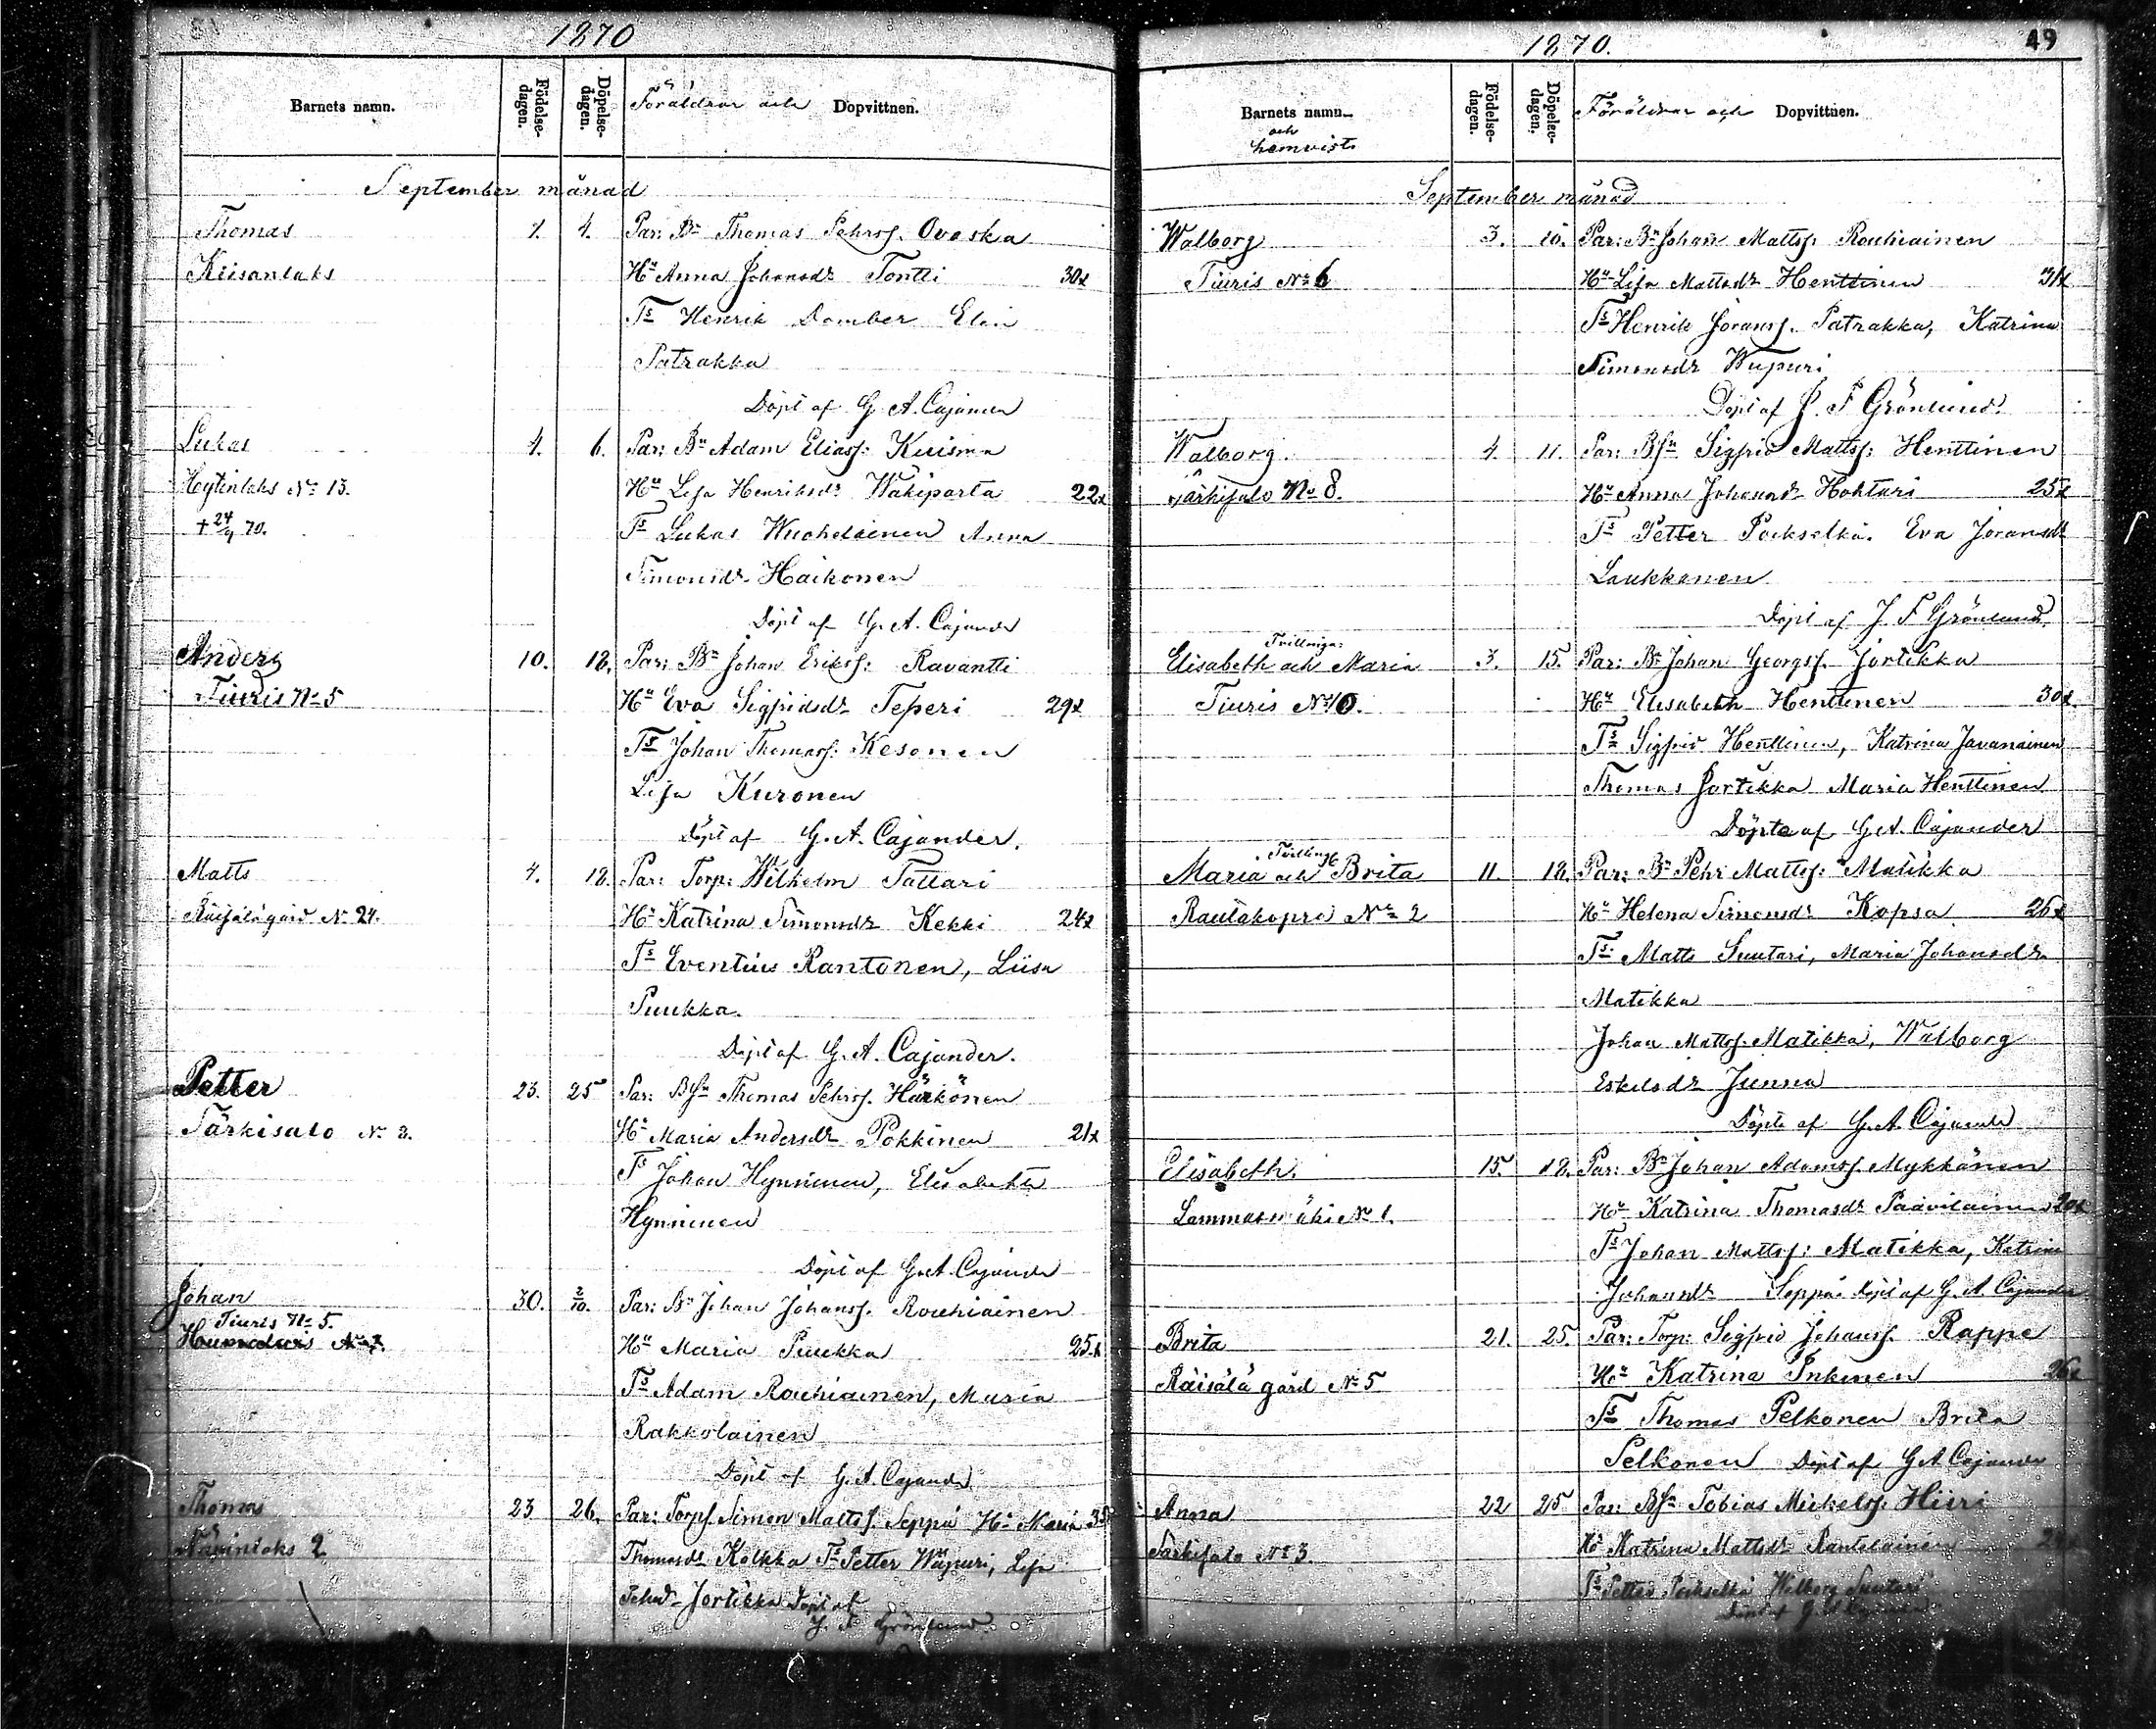 1870
Barnets namn.
Födelse-dagen.
Döpelse-dagen.
Föräldrar och Dopvittnen.
September månad
Thomas 1. 4. Par: Bn Thomas Pehrsf. Ovaska
Kiisanlaks Hu Anna Johansdr Tontti 30
Ts Henrik Domber Elin
Patrakka
Döpt af G. A. Cajander
Lukas 4. 6. Par: Bn Adam Eliasf: Kuisma
Heytinlaks No 13. Hu Lisa Henriksdr Wäkiparta 22
+ 24/9 70. Ts Lukas Wuohelainen Anna
Simonsdr Haikonen
Döpt af G. A. Cajander
Anders 10. 18. Par: Bn Johan Eriksf: Ravantti
Tiuris No 5 Hu Eva Sigfridsdr Teperi 29
Ts Johan Thomasf: Kesonen
Lisa Kuronen
Döpt af G. A. Cajander.
Matts 4. 18. Par: Torp: Wilhelm Tattari
Räisälägård No 24. Hu Katrina Simonsdr Kekki 24
Ts Eventius Rantonen, Liisa
Puukka.
Döpt af G. A. Cajander.
Petter 23. 25 Par: Bsn Thomas Pehrsf. Härkönen
Särkisalo No 3. Hu Maria Andersdr Pokkinen 21
Ts Johan Hynninen, Elisabeth
Hynninen
Döpt af G. A. Cajander
Johan 30. 2/10. Par: Bn Johan Johansf. Rouhiainen
Tiuris No 5.
Hu Maria Puukka 25
Ts Adam Rouhiainen, Maria
Rakkolainen
Döpt af G. A. Cajander
Thomas 23 26. Par: Torpf. Simon Mattsf. Seppä Hu Maria 35
2 Thomasdr Kolkka Ts Petter Wäpuri, Lisa
Jortikka Döpt af
J. F Grönlund
1870.
49
Barnets namn
och
hemvist
Födelse-dagen.
Döpelse-dagen.
Föräldrar och Dopvittnen.
September månad
Walborg 3. 10. Par: Bn Johan Mattsf. Rouhiainen
Tiuris No 6 Hu Lisa Mattsdr Henttinen 31
Ts Henrik Joransf. Patrakka, Katrina
Simonsdr Wäpuri
Döpt af J. F Grönlund
Walborg. 4. 11. Par: Bsn Sigfrid Mattsf: Henttinen
Särkisalo No 8. Hu Anna Johansdr Hohtari 25
Ts Petter Pockselkä. Eva Joransdr
Laukkanen
Döpt af J. F Grönlund
Tvillingar
Elisabeth och Maria 3. 15. Par: Bn Johan Georgsf. Jortikka
Tiuris No 10. Hu Elisabeth Henttinen 30
Ts Sigfrid Henttinen, Katrina Javanainen
Thomas Jortikka Maria Henttinen
Döpte af G. A. Cajander
Tvilling
Maria och Brita 11. 18. Par: Bn Pehr Mattsf: Matikka
Rautakopra No 2 Hu Helena Simonsdr Kopsa 26
Ts Matts Suutari, Maria Johansdr
Matikka
Johan Mattsf. Matikka, Walborg
Eskelsdr Junna
Döpte af G. A. Cajander
Elisabeth. 15. 18. Par: Bn Johan Adamsf. Mykkänen
Lammasmäki No 1. Hu Katrina Thomasdr Paavilainen 20
Ts Johan Mattsf: Matikka, Katrina
Johansdr Seppä Döpt af G. A. Cajander
Brita 21. 25. Par: Torp: Sigfrid Johansf. Rappe
Räisälä gård No 5 Hu Katrina Inkinen 26
Ts Thomas Pelkonen Brita
Pelkonen Döpt af G. A Cajander
Anna 22 25 Par: Bsn Tobias Mickelsf: Hiiri
Särkisalo No 3 Hu Katrina Mattsdr Rantalainen
Ts Petter Pockselkä Walborg Suutari
Döpt af G. A Cajander